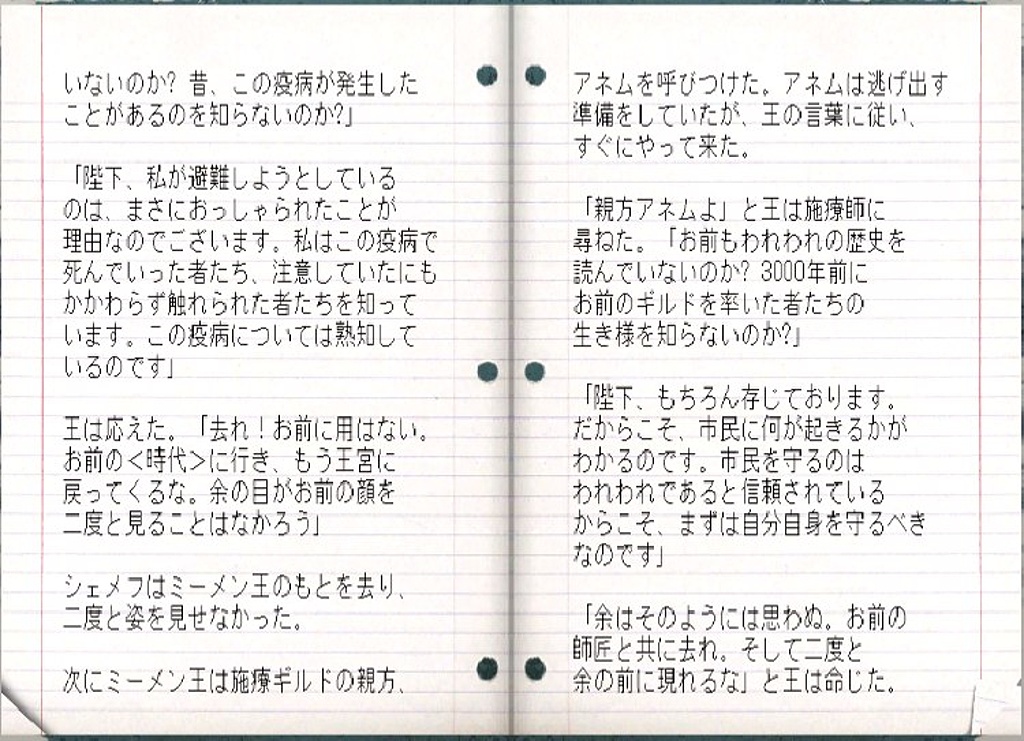 いないのか? 昔、この疫病が発生した
ことがあるのを知らないのか?」
「陛下、私が避難しようとしている
のは、まさにおっしゃられたことが
理由なのでございます。私はこの疫病で
死んでいった者たち、注意していたにも
かかわらず触れられた者たちを知って
います。この疫病については熟知して
いるのです」
王は応えた。「去れ!お前に用はない。
お前の<時代>に行き、もう王宮に
戻ってくるな。余の目がお前の顔を
二度と見ることはなかろう」
シェメフはミーメン王のもとを去り、
二度と姿を見せなかった。
次にミーメン王は施療ギルドの親方、
アネムを呼びつけた。アネムは逃げ出す
準備をしていたが、王の言葉に従い、
すぐにやって来た。
「親方アネムよ」と王は施療師に
尋ねた。「お前もわれわれの歴史を
読んでいないのか? 3000年前に
お前のギルドを率いた者たちの
生き様を知らないのか?」
「陛下、もちろん存じております。
だからこそ、市民に何が起きるかが
わかるのです。市民を守るのは
われわれであると信頼されている
からこそ、まずは自分自身を守るべき
なのです」
「余はそのようには思わぬ。お前の
師匠と共に去れ。そして二度と
余の前に現れるな」と王は命じた。